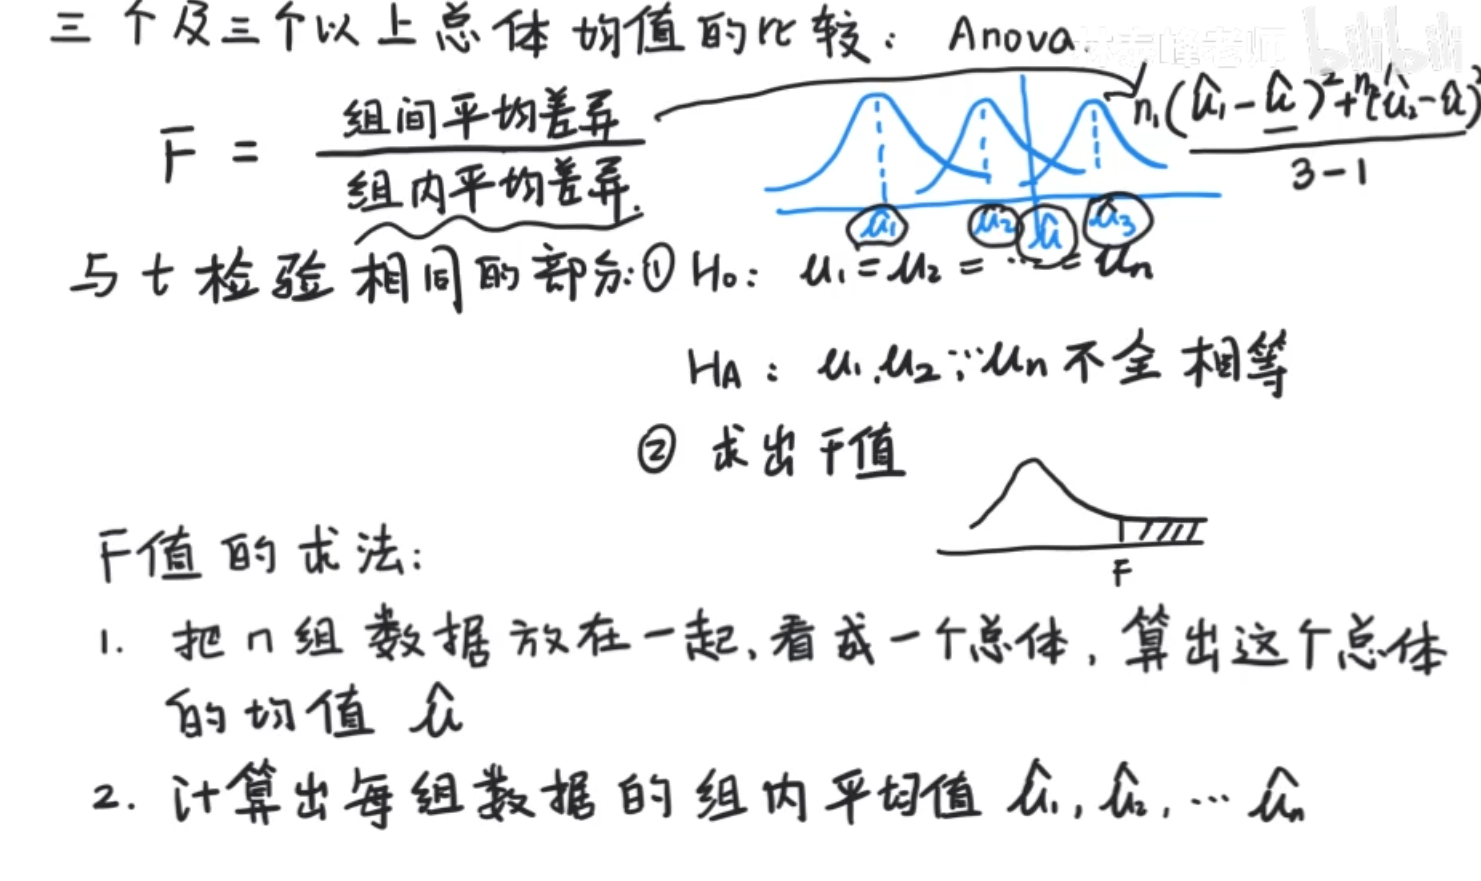 三个及三个以上总体均值的比较: Anova.
林老峰老师 bilibili
F = 组间平均差异 / 组内平均差异.
n₁(û₁-û)²+n₂(û₂-û)² / 3-1
û₁ û₂ û û₃
与t检验相同的部分:① H₀: u₁=u₂=…=uₙ
H_A: u₁.u₂…uₙ不全相等
② 求出F值
F
F值的求法:
1. 把n组数据放在一起,看成一个总体,算出这个总体
的均值 û
2. 计算出每组数据的组内平均值 û₁, û₂, … ûₙ